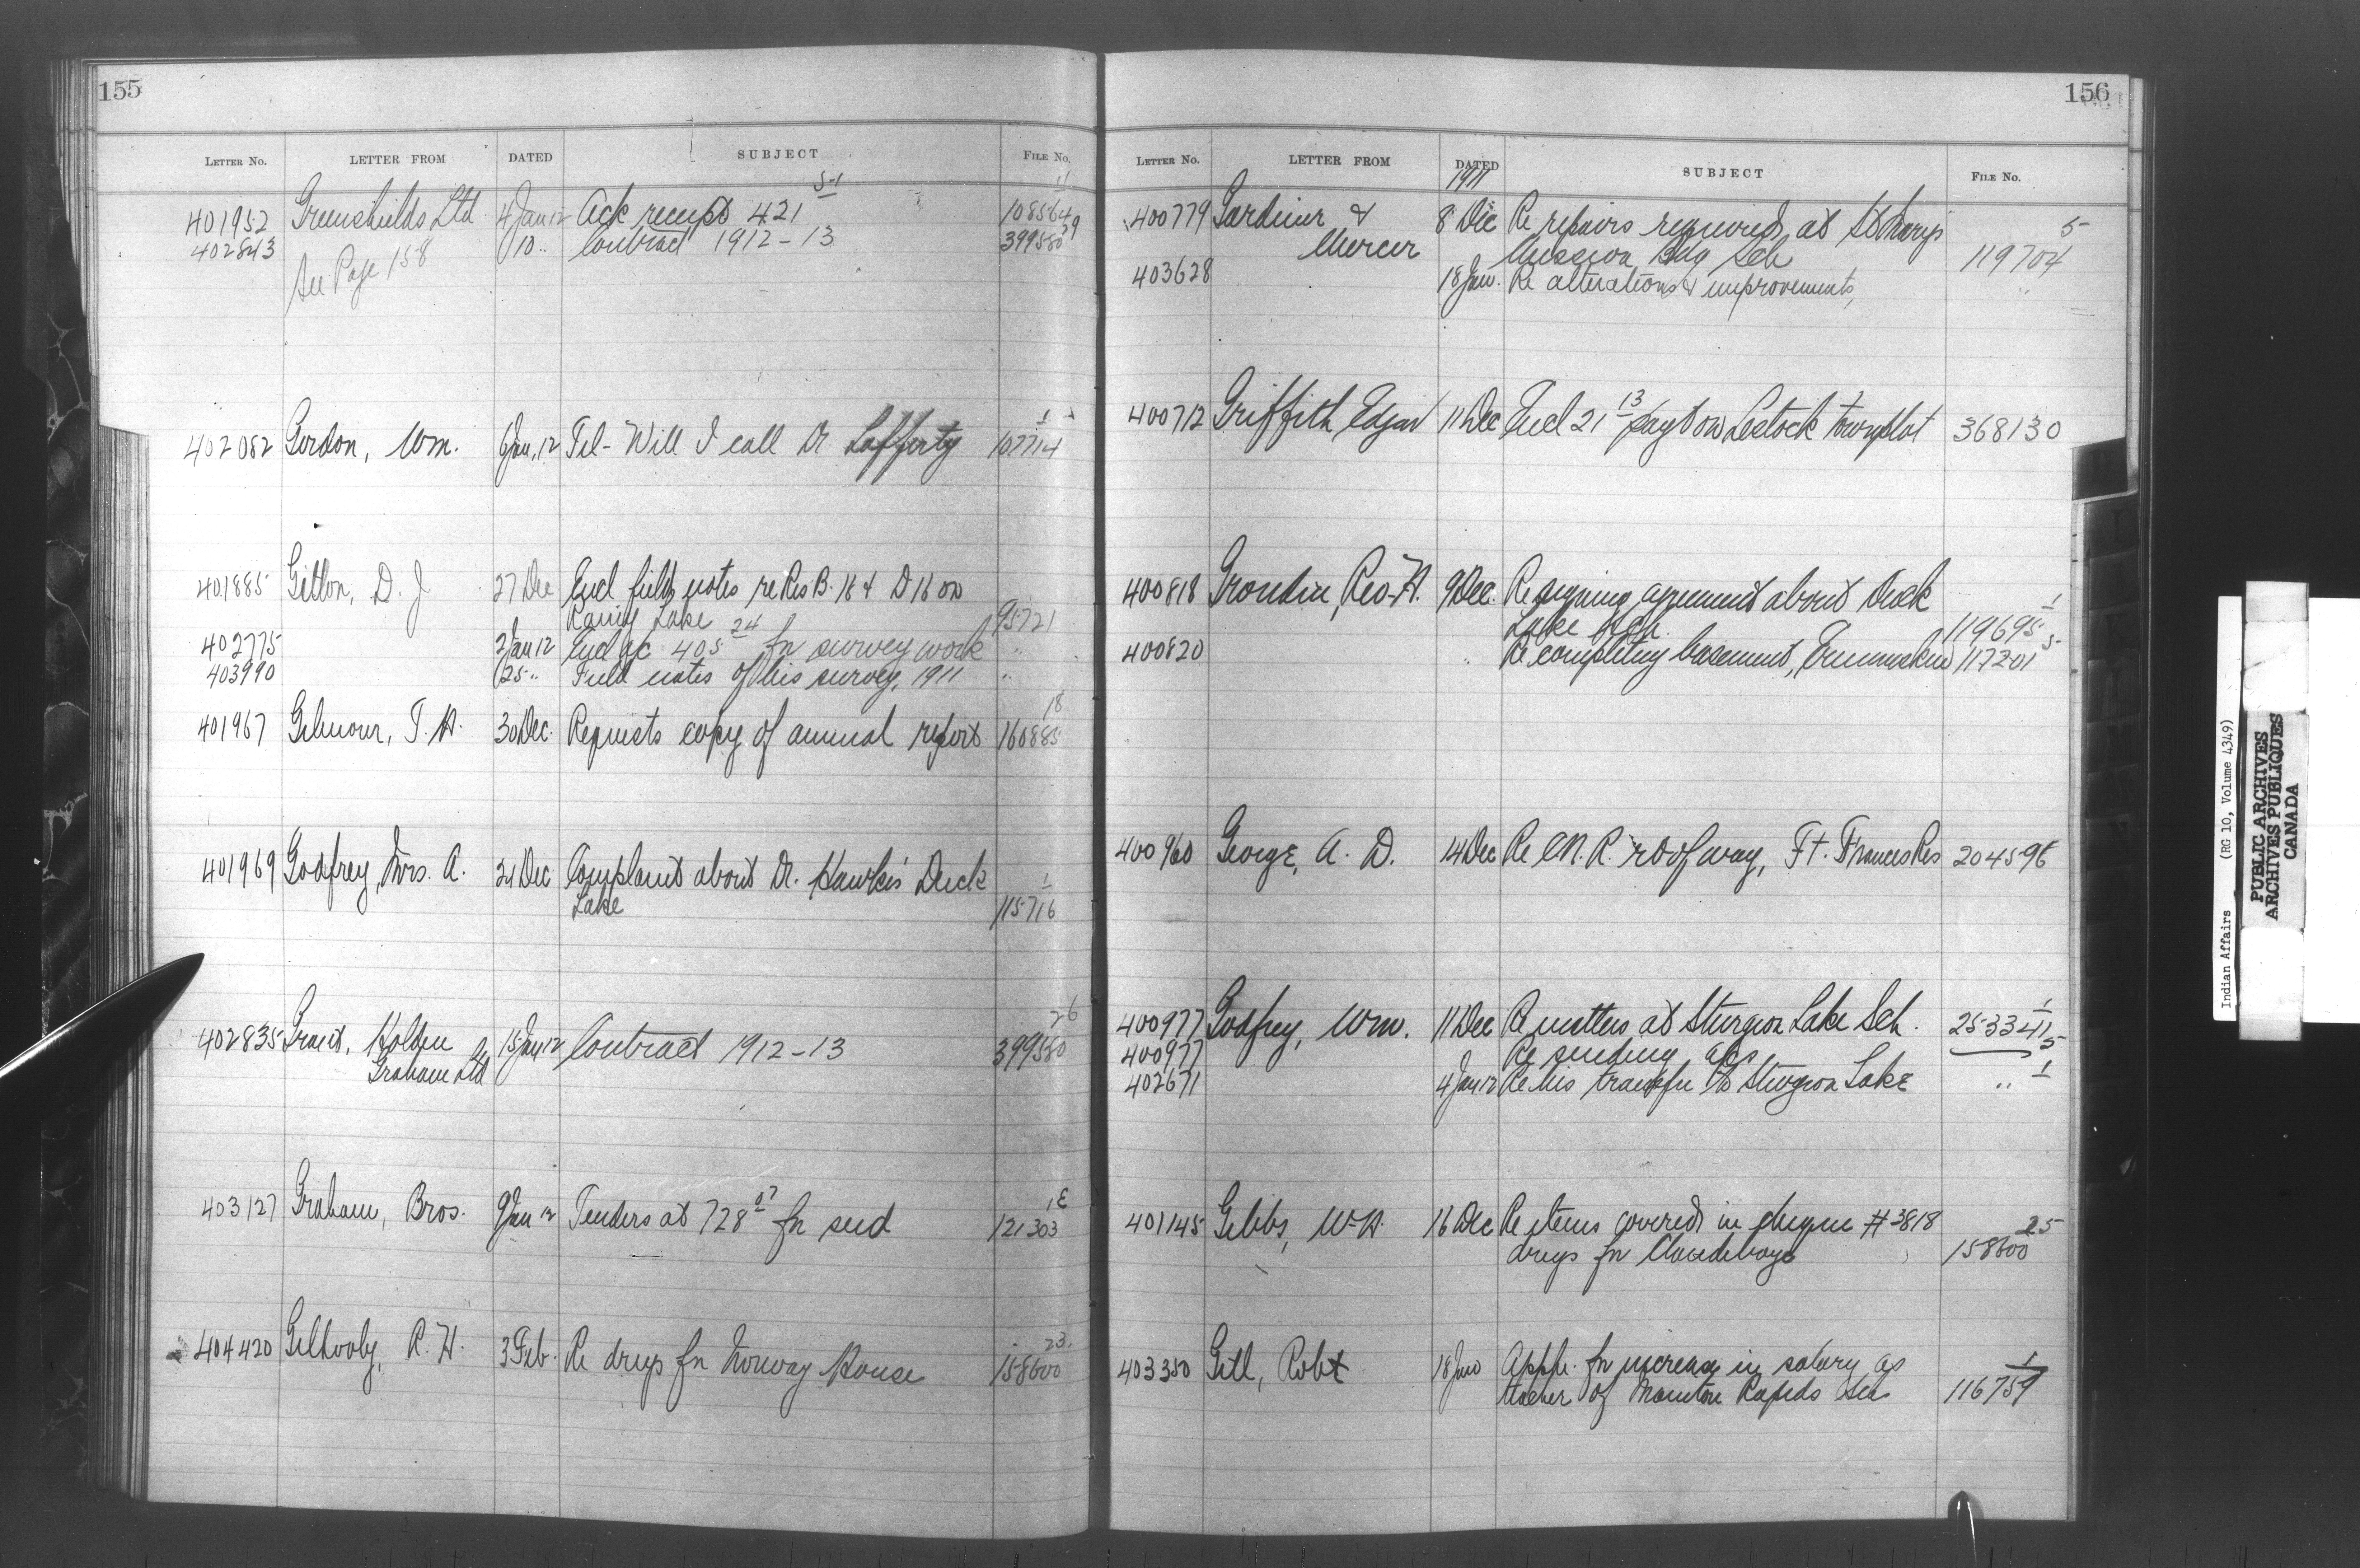 155
LETTER No. LETTER FROM DATED SUBJECT FILE No.
401952 Greenshields Ltd 4 Jan 12 Ack receipt 421 51 11 108564
402843 10 " Contract 1912-13 39 399580
See Page 158
402082 Gordon, Wm. 6 Jan, 12 Tel- Will I call Dr Lafferty 1 107714
401885 Gillon, D. J 27 Dec Encl field notes re Res B. 16 & D 16 on
Rainy Lake 95721
402775 2 Jan 12 Encl ac 405 24 for survey work "
403990 25 " Field notes of his survey, 1911 "
401967 Gilmour, T. H. 30 Dec. Requests copy of annual report 18 160885
401969 Godfrey, Mrs. A. Dec Complaint about Dr. Duck
Lake 1 115716
402835 Grant, Holden & 15 Jan 12 Contract 1912-13 26 399580
Graham Ltd
403127 Graham, Bros. 9 Jan 12 Tenders at 728 07 for seed 1E 121303
404420 Gilhooly, R. H. 3 Feb. Re drugs for Norway House 23. 158600
156
LETTER No. LETTER FROM DATED SUBJECT FILE No.
1911
400779 Gardiner & 8 Dec Re repairs required at St Mary's 5
Mercer Mission Bdg Sch 119704
403628 18 Jan. Re alterations & improvements, "
400712 Griffith, Edgar 11 Dec Encl 21 13 payt on Lestock townplot 368130
400818 Grondin, Rev. H. 9 Dec. Re signing agreement about Duck 1
Lake Sch. 119695
400820 " Re completing basement, Ermineskin 5 117201
400960 George, A. D. 14 Dec Re C.N.R. r of way, Ft. Frances Res 204596
400977 Godfrey, Wm. 11 Dec Re matters at Sturgeon Lake Sch. 1 253341
400977 Re sending 5
402671 4 Jan 12 Re his transfer to Sturgeon Lake " 1
401145 Gibbs, W. H. 16 Dec Re items covered in cheque # 3818 25
drugs for Clandeboye 158600
403350 Gill, Robt 18 Jan Appln. for increase in salary as 1
teacher of Manitou Rapids Sch 116759
Indian Affairs (RG 10, Volume 4349)
PUBLIC ARCHIVES
ARCHIVES PUBLIQUES
CANADA